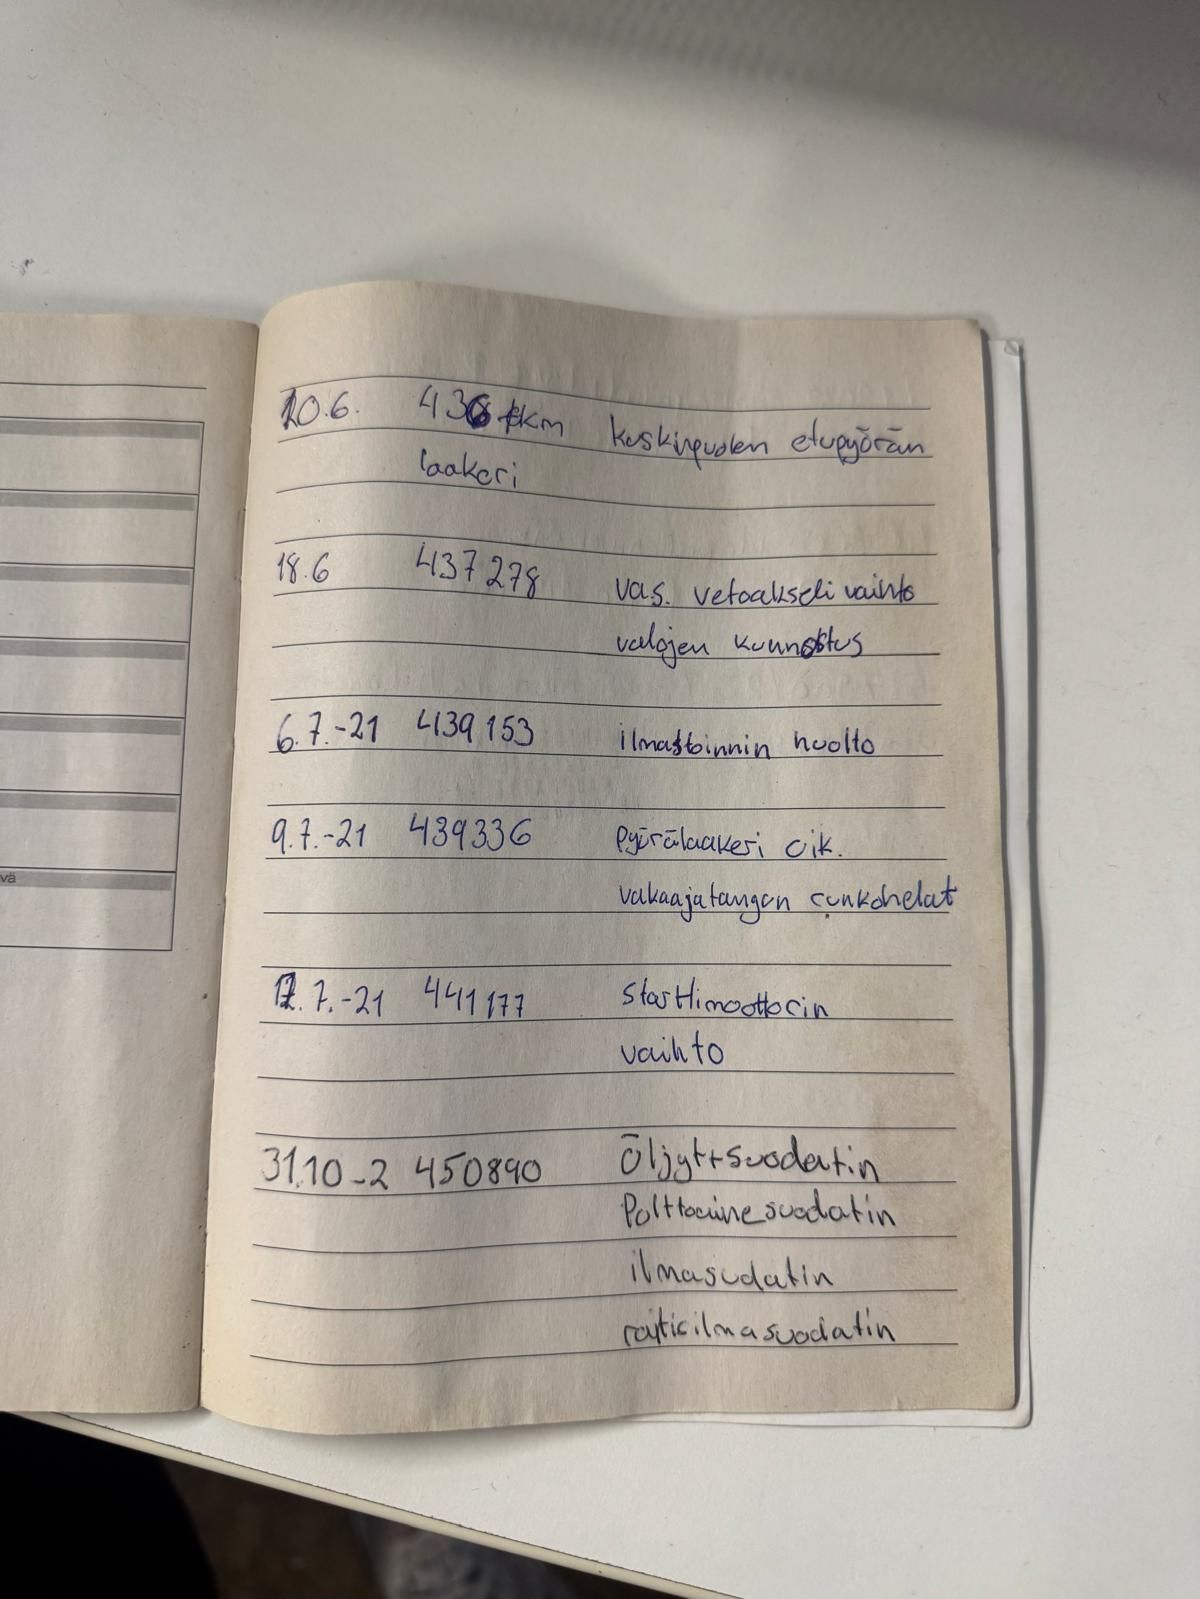 vä
10.6. 436 tkm kuskinpuolen etupyörän
laakeri
18.6 437 278 vas. vetoakseli vaihto
valojen kunnostus
6.7.-21 439 153 ilmastoinnin huolto
9.7.-21 439336 pyörälaakeri oik.
vakaajatangon runkohelat
7.-21 441 177 starttimoottorin
vaihto
31.10-2 450890 Öljyt+suodatin
Polttoainesuodatin
ilmasudatin
raitisilmasuodatin